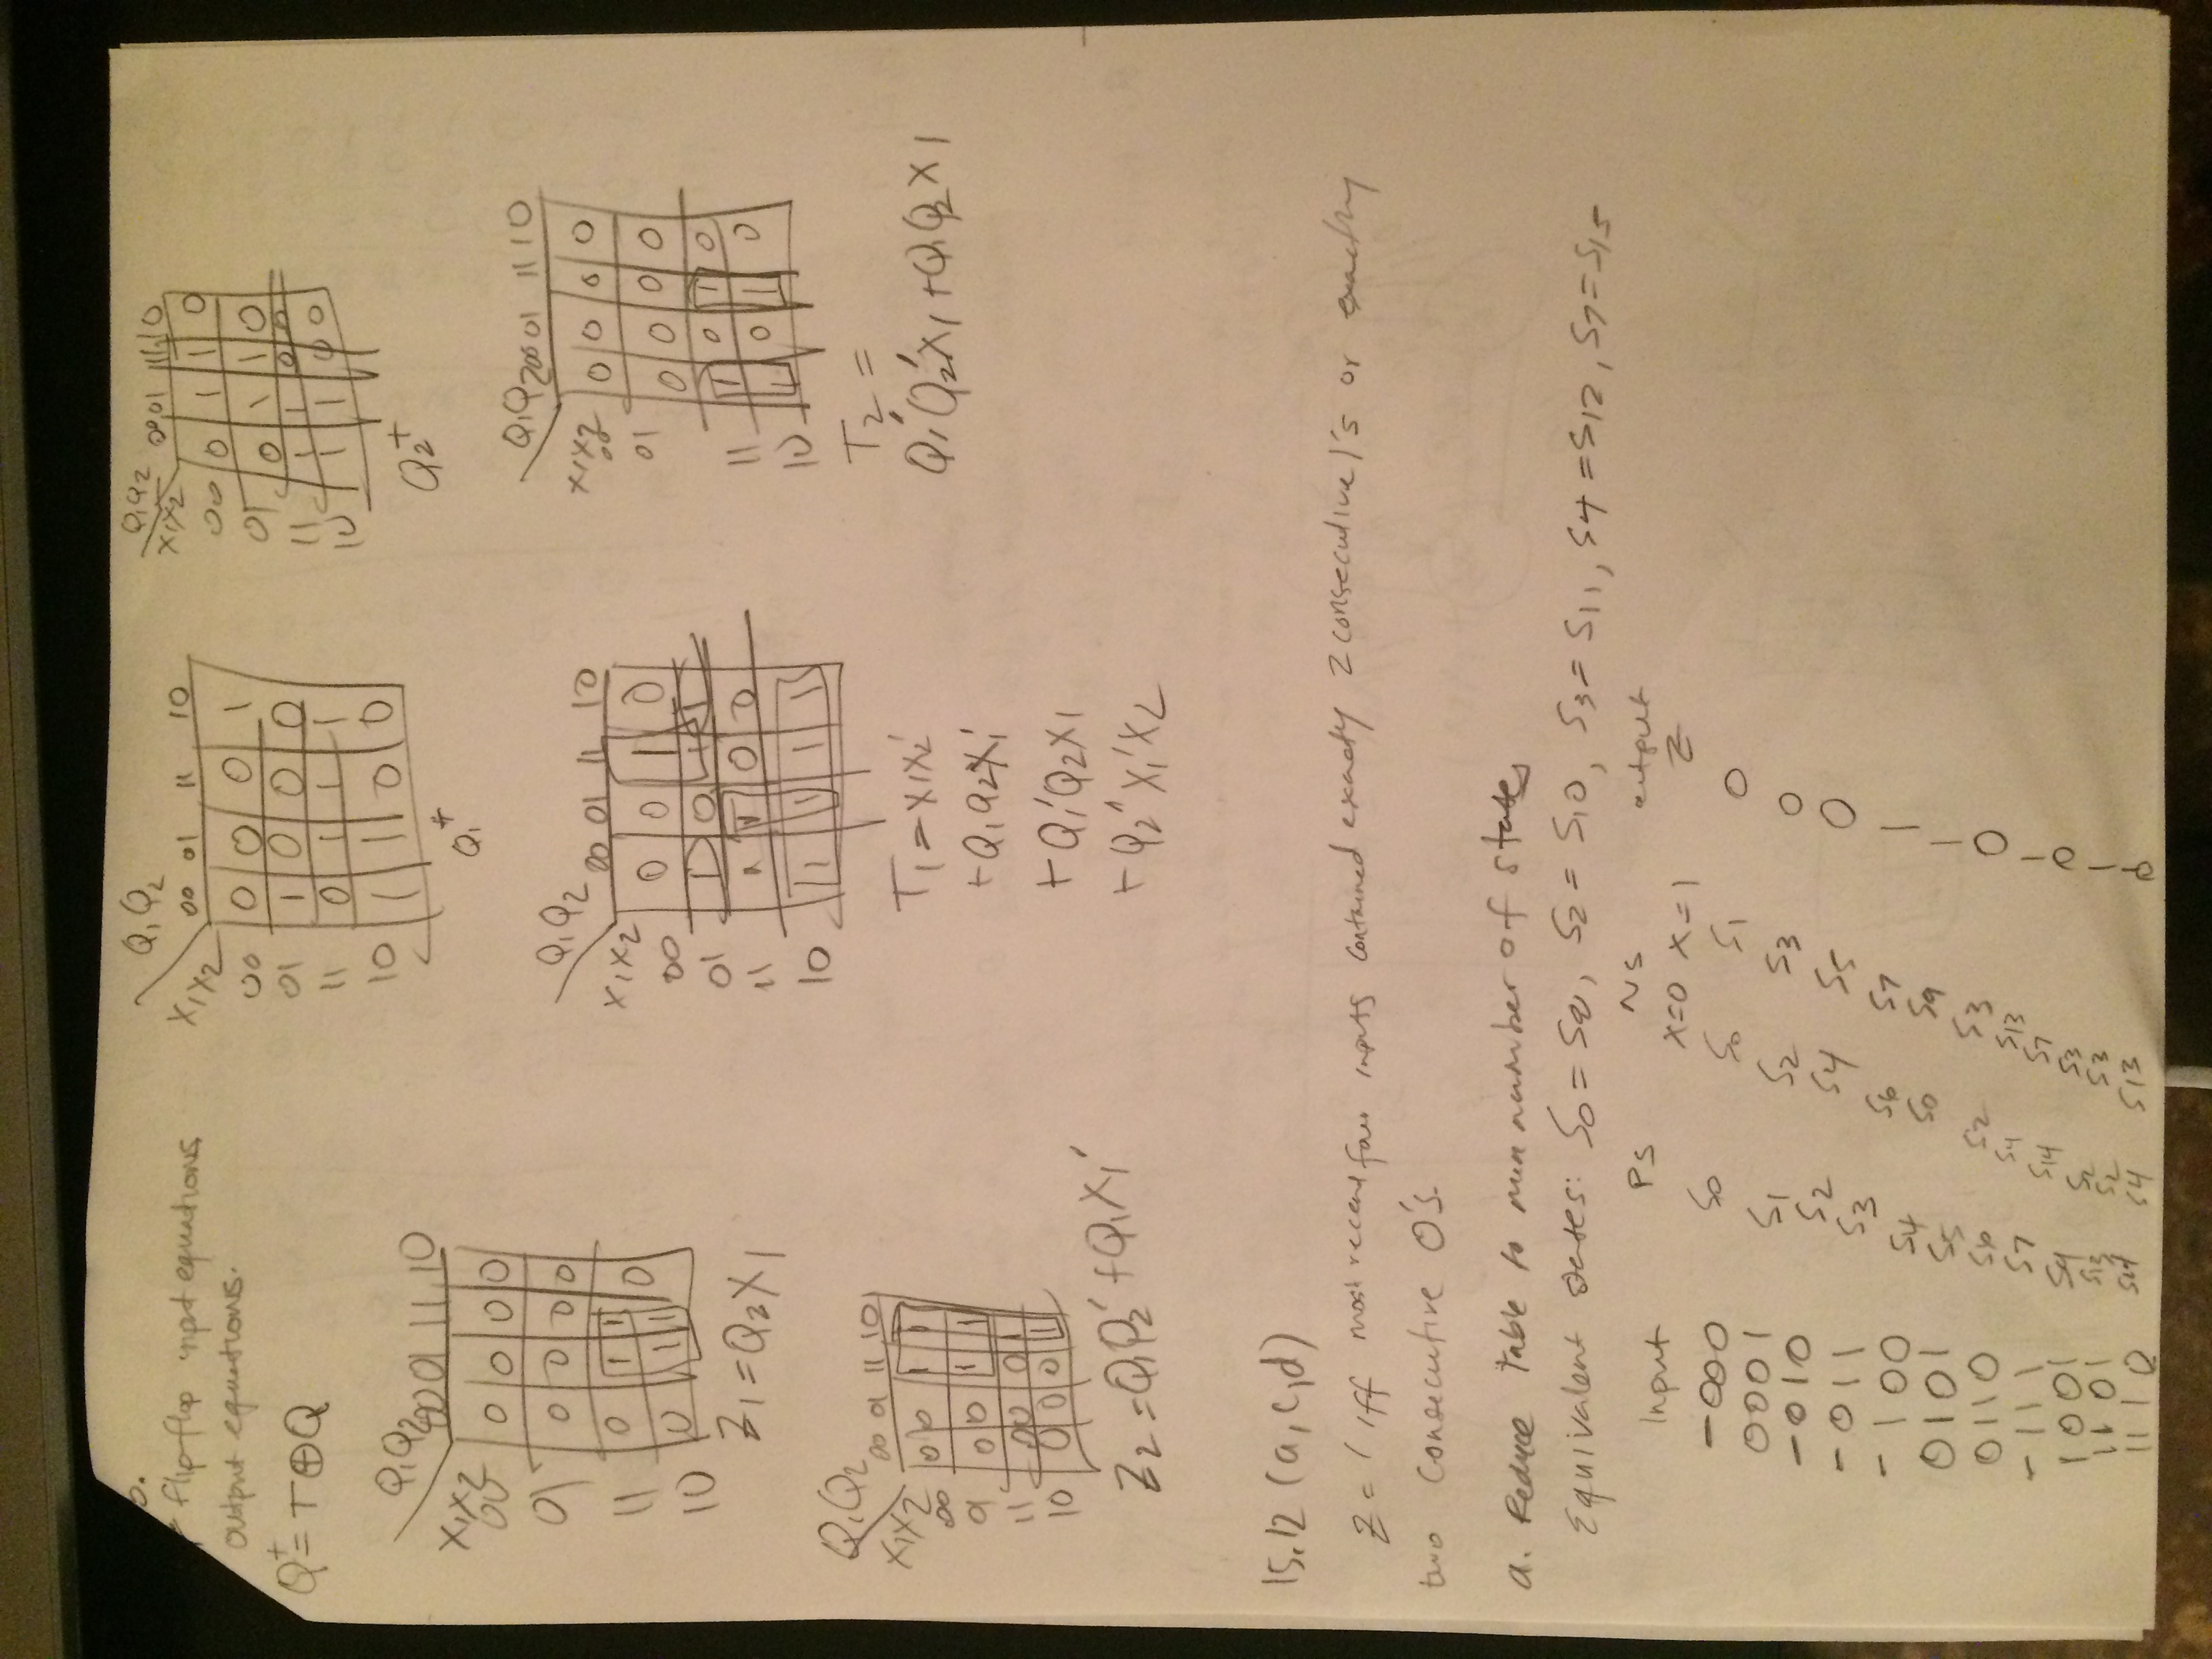 b.
flip-flop input equations
output equations.
Q⁺ = T⊕Q
Q₁Q₂
X₁X₂ 00 01 11 10
00 0 0 0 0
01 0 0 0 0
11 0 1 1 0
10 0 1 1
Z₁ = Q₂X₁
Q₁Q₂
X₁X₂ 00 01 11 10
00 0 0 1 1
01 0 0 1 1
11 0 0 0 1
10 0 0 0 1
Z₂ = Q₁Q₂' + Q₁X₁'
Q₁Q₂
X₁X₂ 00 01 11 10
00 0 0 0 1
01 1 0 0 0
11 0 1 1 1
10 1 1 0 0
Q₁⁺
Q₁Q₂
X₁X₂ 00 01 11 10
00 0 0 1 0
01 1 0 1 1
11 1 0 0
10 1 1 1 1
T₁ = X₁X₂'
+ Q₁Q₂X₁'
+ Q₁'Q₂X₁
+ Q₂'X₁'X₂
Q₁Q₂
X₁X₂ 00 01 11 10
00 0 1 1 0
01 0 1 1 0
11 1 1 0 0
10 1 1 0 0
Q₂⁺
Q₁Q₂ 00 01 11 10
X₁X₂
00 0 0 0 0
01 0 0 0 0
11 1 0 1 0
10 1 0 1 0
T₂ =
Q₁'Q₂'X₁ + Q₁Q₂X₁
15.12 (a,c,d)
Z = 1 iff most recent four inputs contained exactly 2 consecutive 1's or exactly
two consecutive 0's.
a. Reduce Table to min number of states
Equivalent states: S0 = S8, S2 = S10, S3 = S11, S4 = S12, S7 = S15
Input PS NS output
X=0 X=1 Z
-000 S0 S0 S1 0
0001 S1 S2 S3 0
-010 S2 S4 S5 0
-011 S3 S6 S7 1
-100 S4 S0 S9 1
0101 S5 S2 S3 0
0110 S6 S4 S13 1
-111 S7 S14 S7 0
1001 S9 S2 S3 1
1101 S13 S2 S3
1110 S14 S4 S13 0